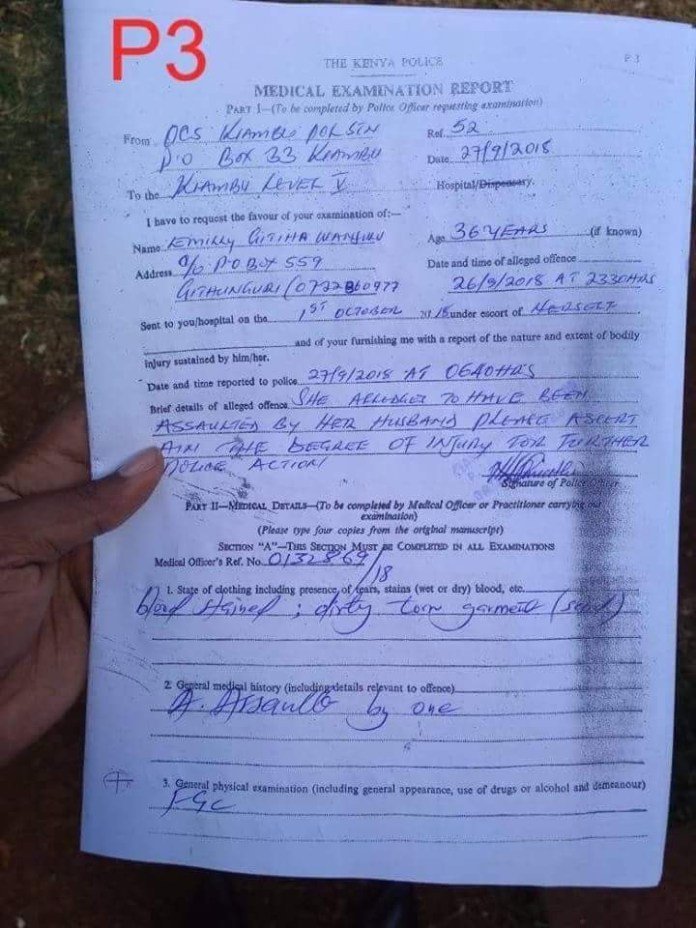 P3
THE KENYA POLICE
P 3
MEDICAL EXAMINATION REPORT
PART I—(To be completed by Police Officer requesting examination)
From OCS KIAMBU POL STN Ref. 52
P.O BOX 33 KIAMBU Date 27/9/2018
To the KIAMBU LEVEL V Hospital/Dispensary.
I have to request the favour of your examination of:—
Name GITIHA WANJIRU Age 36 YEARS (if known)
Address C/o P.O BOX 559 Date and time of alleged offence
GITHUNGURI 26/9/2018 AT 2330HRS
Sent to you/hospital on the 1ST OCTOBER 2018 under escort of HERSELF
and of your furnishing me with a report of the nature and extent of bodily
injury sustained by him/her.
Date and time reported to police 27/9/2018 AT 0640HRS
Brief details of alleged offence SHE ALLEDGES TO HAVE BEEN
ASSAULTED BY HER HUSBAND PLEASE ASCERT
AIN THE DEGREE OF INJURY FOR FURTHER
POLICE ACTION
Signature of Police Officer
PART II—MEDICAL DETAILS—(To be completed by Medical Officer or Practitioner carrying out
examination)
(Please type four copies from the original manuscript)
SECTION "A"—THIS SECTION MUST BE COMPLETED IN ALL EXAMINATIONS
Medical Officer's Ref. No. 0132869/18
1. State of clothing including presence of tears, stains (wet or dry) blood, etc.
blood stained; dirty torn garment
2. General medical history (including details relevant to offence)
A. Assault by one
3. General physical examination (including general appearance, use of drugs or alcohol and demeanour)
FGC